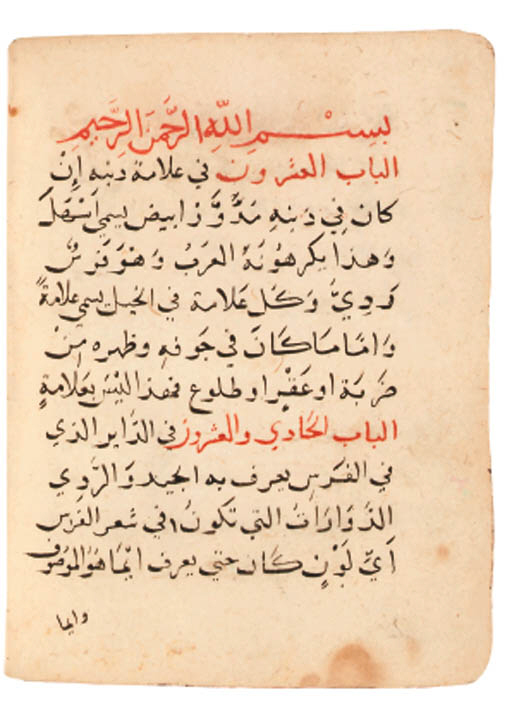 بِسْمِ اللهِ الرَّحْمَنِ الرَّحِيمِ
الباب العشرون في علامة دنبه إنْ
كان في دنبه مدَوَّرْ ابيض يسمي اشهلَ
وهذا يكرهُونَهُ العربُ وهوَ فَرَسٌ
رَدِيٌّ وَكل عَلامة في الخيل يسمي علامةً
وَامّا مَا كَانَ في جوفهِ وظهره مِنْ
ضربَة او عَقْرٍ او طلوع فهذا ليْسَ بعَلامةٍ
الباب الحادي والعشرون في الدَّاير الذي
في الفرَسِ يعرف به الجيد وَالرَّدِي
الدَّوَارَاتُ التي تكونُ في شعر الفرَس
أيِّ لَوْنٍ كَانَ حتي يعرف ايّما هُوَ الموصُوف
وايما